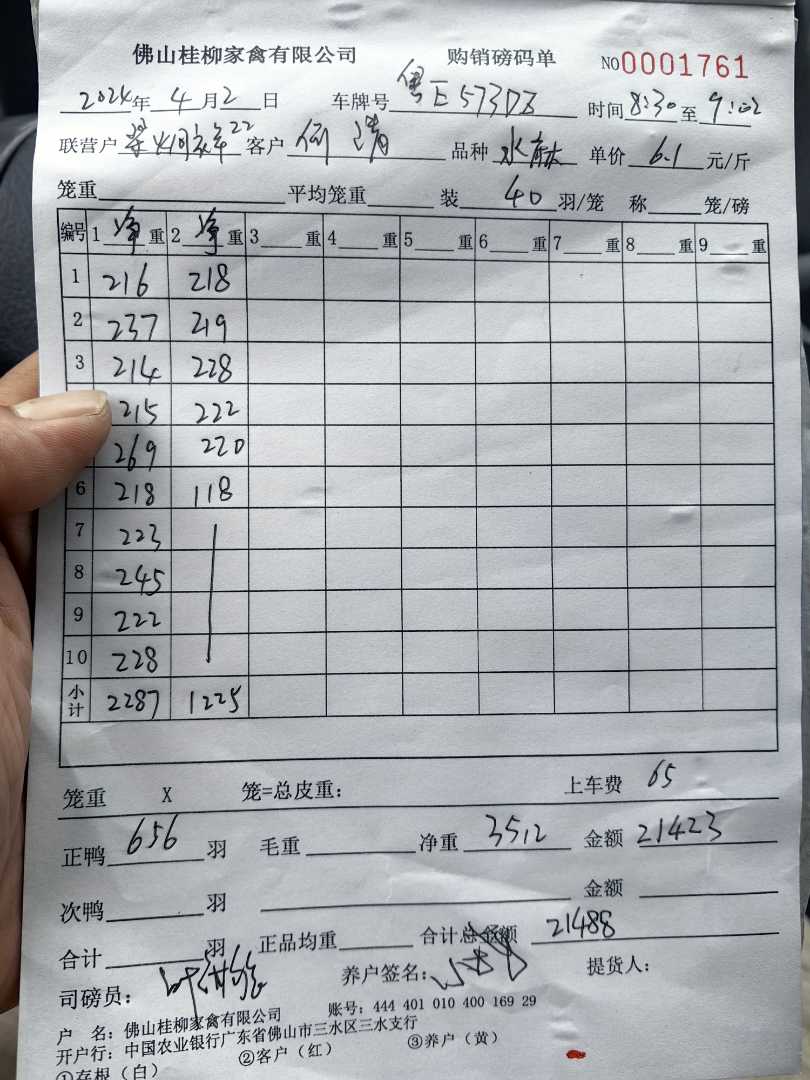 佛山桂柳家禽有限公司 购销磅码单 NO0001761
2024年 4月2日 车牌号 粤E573DZ 时间8:30至9:02
联营户 22 客户 品种 水麻 单价 6.1 元/斤
笼重 平均笼重 装 40 羽/笼 称 笼/磅
编号 1 净 重 2 净 重 3 重 4 重 5 重 6 重 7 重 8 重 9 重
1 216 218
2 237 219
3 214 228
215 222
269 220
6 218 118
7 223
8 245
9 222
10 228
小计 2287 1225
笼重 X 笼=总皮重: 上车费 65
正鸭 656 羽 毛重 净重 3512 金额 21423
次鸭 羽 金额
合计 羽 正品均重 合计总金额 21488
司磅员: 养户签名: 提货人:
户 名: 佛山桂柳家禽有限公司 账号: 444 401 010 400 169 29
开户行: 中国农业银行广东省佛山市三水区三水支行
①存根(白) ②客户(红) ③养户(黄)